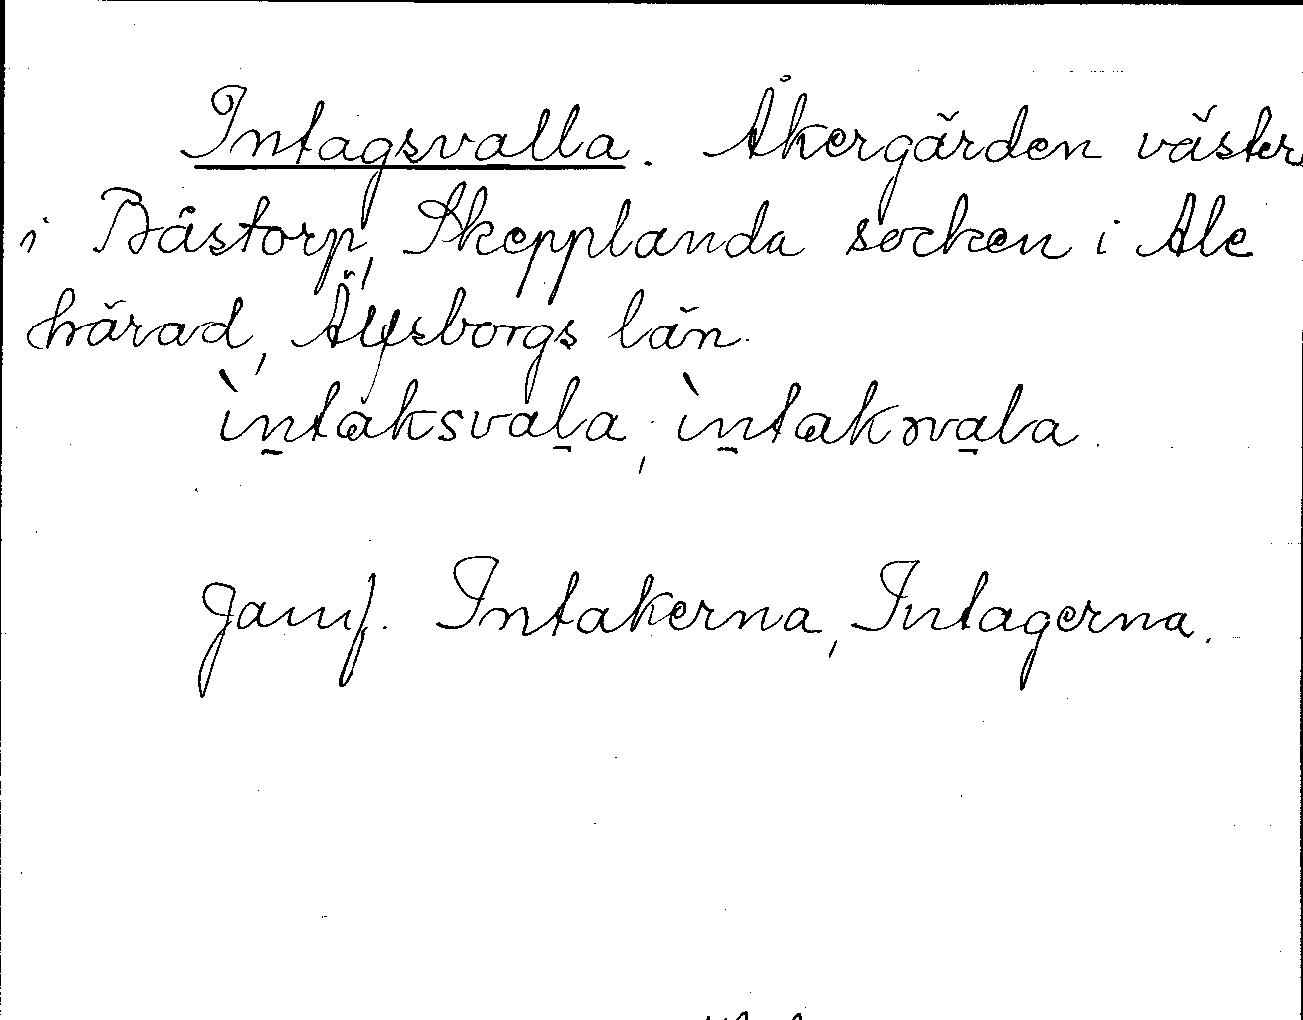 Intagsvalla. Åkergärden väster
i Båstorp, Skepplanda socken i Ale
härad, Älfsborgs län.
ìn̲taksval̲a, ìn̲takrva̲la.
Jämf. Intakerna, Intagerna.